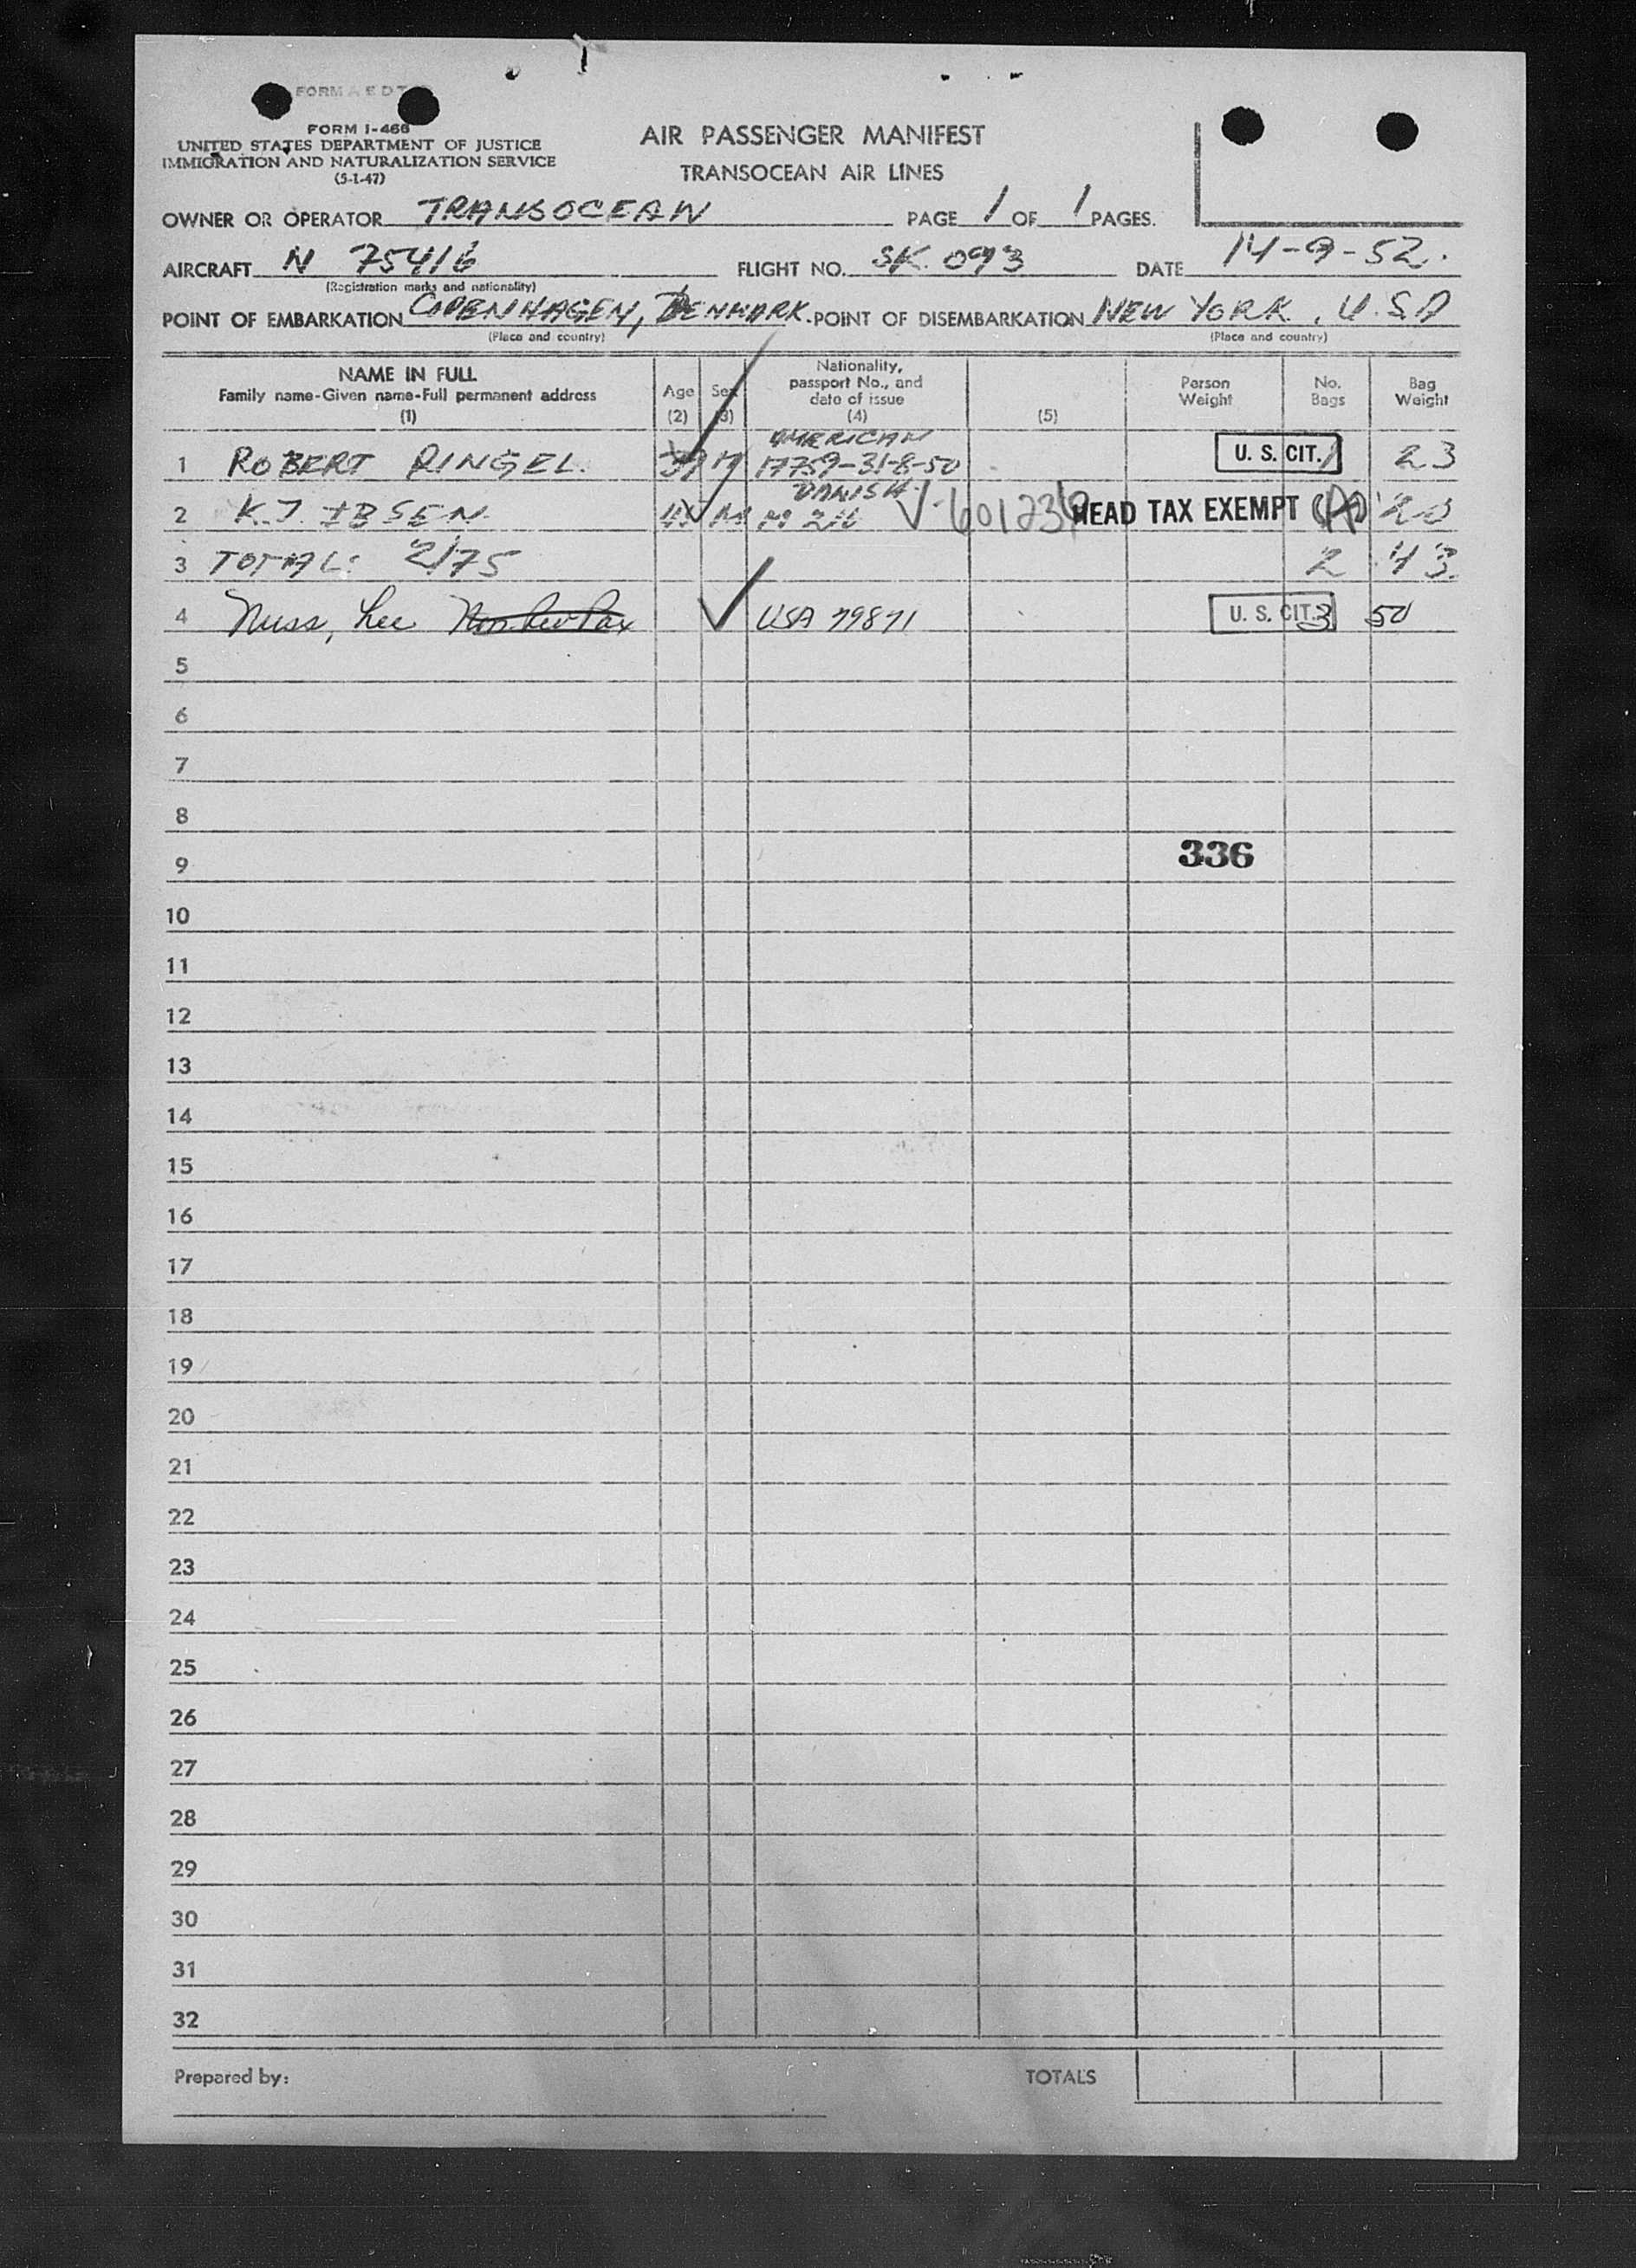 FORM I-466
UNITED STATES DEPARTMENT OF JUSTICE
IMMIGRATION AND NATURALIZATION SERVICE
(5-1-47)
AIR PASSENGER MANIFEST
TRANSOCEAN AIR LINES
OWNER OR OPERATOR TRANSOCEAN PAGE 1 OF 1 PAGES.
AIRCRAFT N 75416 FLIGHT NO. SK. 093 DATE 14-9-52.
(Registration marks and nationality)
POINT OF EMBARKATION COPENHAGEN, DENMARK. POINT OF DISEMBARKATION NEW YORK, U.S.A
(Place and country) (Place and country)
NAME IN FULL
Family name-Given name-Full permanent address
(1)
Age
(2)
Sex
(3)
Nationality,
passport No., and
date of issue
(4)
(5)
Person
Weight
No.
Bags
Bag
Weight
AMERICAN
1 ROBERT RINGEL. 39 M 17759-31-8-50 U. S. CIT. 1 23
DANISH
2 K.J. IBSEN M HEAD TAX EXEMPT (A) 20
3 TOTAL: 2/75 2 43
4 Nuss, Lee USA 79871 U. S. CIT. 3 50
5
6
7
8
336
9
10
11
12
13
14
15
16
17
18
19
20
21
22
23
24
25
26
27
28
29
30
31
32
Prepared by: TOTALS